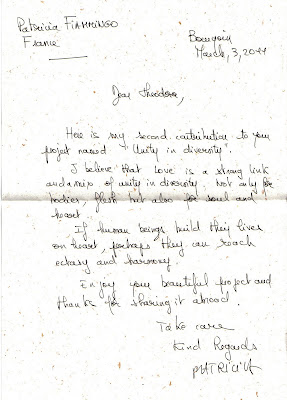 Patricia FIAMMINGO
France
March, 3, 2011
Dear Theodora,
Here is my second contribution to your
project named "Unity in diversity".
I believe that love is a strong link
of unity in diversity. Not only for
bodies, flesh but also for soul and
heart.
If human beings build their lives
on heart, perhaps they can reach
ectasy and harmony.
Enjoy your beautiful project and
thanks for sharing it abroad.
Take care
Kind Regards
PATRICIA